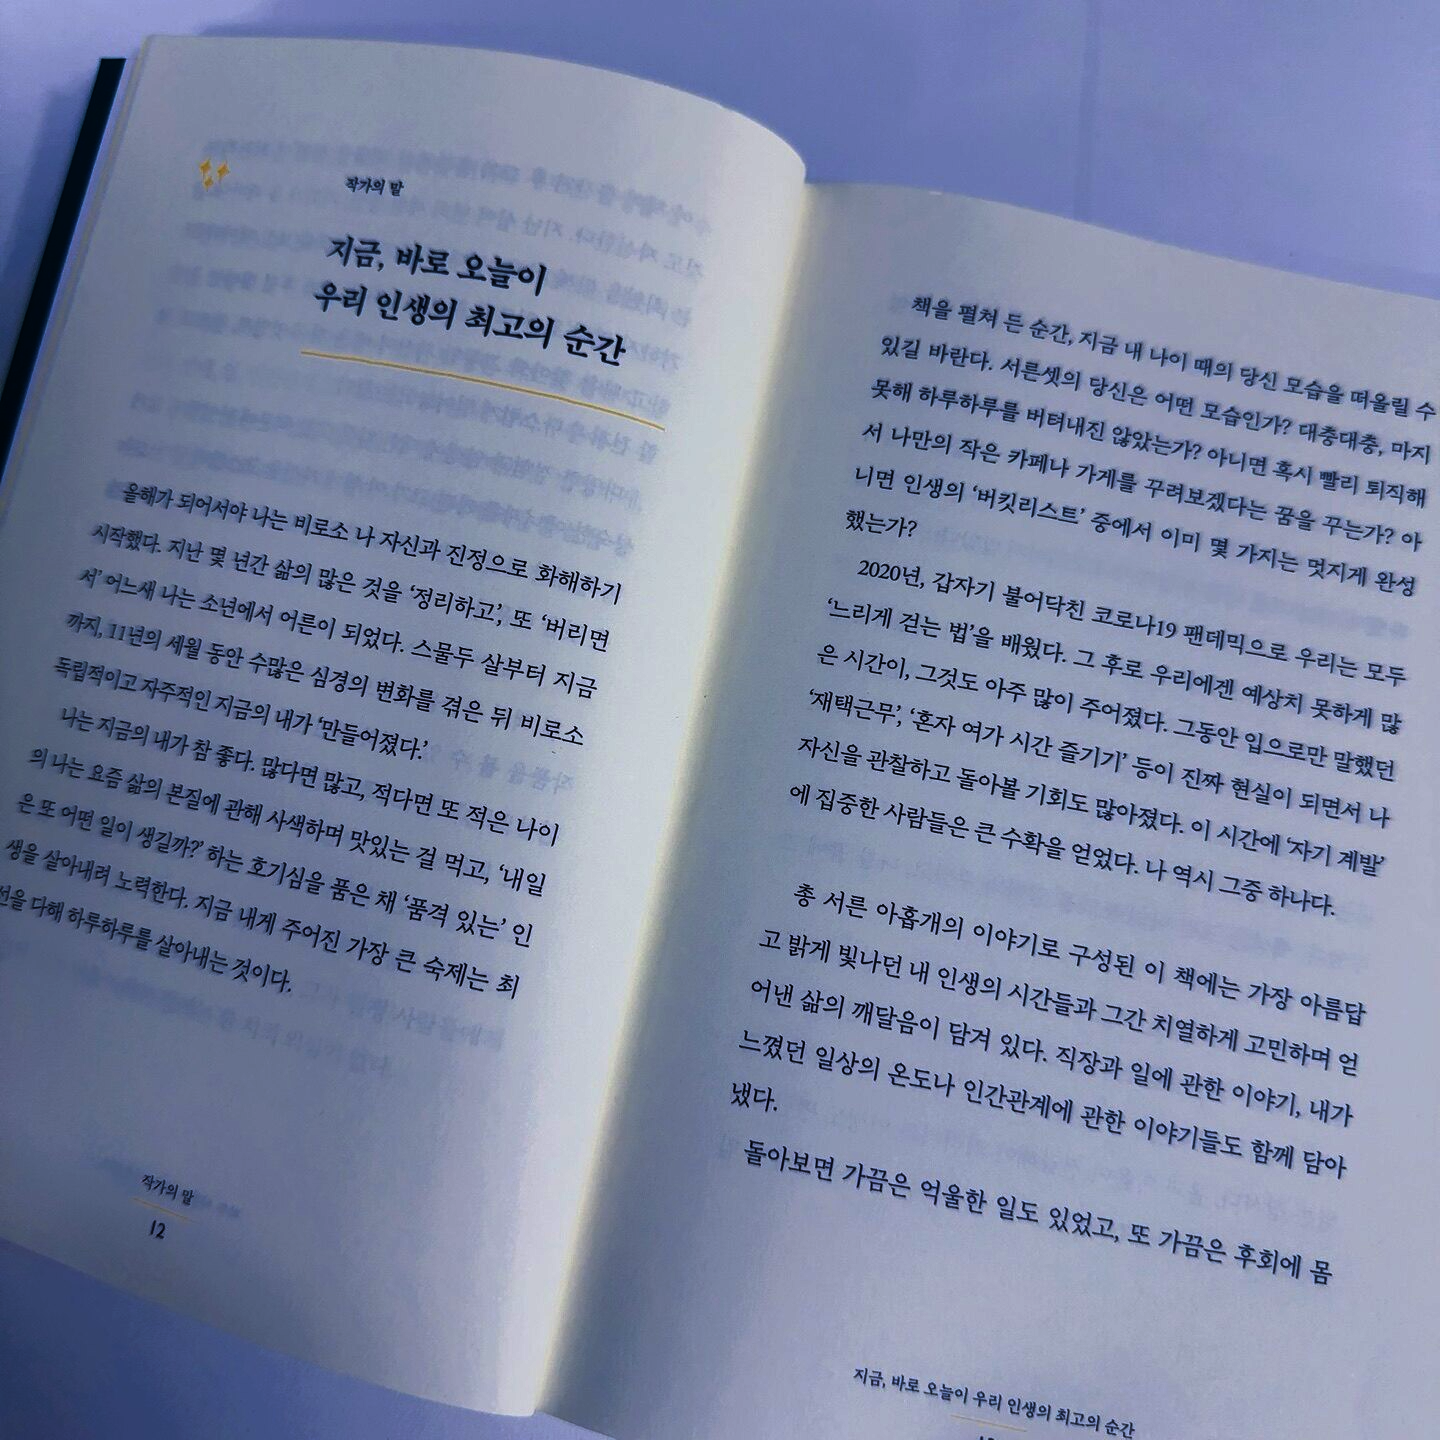 작가의 말
지금, 바로 오늘이
우리 인생의 최고의 순간
올해가 되어서야 나는 비로소 나 자신과 진정으로 화해하기
시작했다. 지난 몇 년간 삶의 많은 것을 ‘정리하고’, 또 ‘버리면
서’ 어느새 나는 소년에서 어른이 되었다. 스물두 살부터 지금
까지, 11년의 세월 동안 수많은 심경의 변화를 겪은 뒤 비로소
독립적이고 자주적인 지금의 내가 ‘만들어졌다.’
나는 지금의 내가 참 좋다. 많다면 많고, 적다면 또 적은 나이
의 나는 요즘 삶의 본질에 관해 사색하며 맛있는 걸 먹고, ‘내일
은 또 어떤 일이 생길까?’ 하는 호기심을 품은 채 ‘품격 있는’ 인
생을 살아내려 노력한다. 지금 내게 주어진 가장 큰 숙제는 최
선을 다해 하루하루를 살아내는 것이다.
작가의 말
12
책을 펼쳐 든 순간, 지금 내 나이 때의 당신 모습을 떠올릴 수
있길 바란다. 서른셋의 당신은 어떤 모습인가? 대충대충, 마지
못해 하루하루를 버텨내진 않았는가? 아니면 혹시 빨리 퇴직해
서 나만의 작은 카페나 가게를 꾸려보겠다는 꿈을 꾸는가? 아
니면 인생의 ‘버킷리스트’ 중에서 이미 몇 가지는 멋지게 완성
했는가?
2020년, 갑자기 불어닥친 코로나19 팬데믹으로 우리는 모두
‘느리게 걷는 법’을 배웠다. 그 후로 우리에겐 예상치 못하게 많
은 시간이, 그것도 아주 많이 주어졌다. 그동안 입으로만 말했던
‘재택근무’, ‘혼자 여가 시간 즐기기’ 등이 진짜 현실이 되면서 나
자신을 관찰하고 돌아볼 기회도 많아졌다. 이 시간에 ‘자기 계발’
에 집중한 사람들은 큰 수확을 얻었다. 나 역시 그중 하나다.
총 서른 아홉개의 이야기로 구성된 이 책에는 가장 아름답
고 밝게 빛나던 내 인생의 시간들과 그간 치열하게 고민하며 얻
어낸 삶의 깨달음이 담겨 있다. 직장과 일에 관한 이야기, 내가
느꼈던 일상의 온도나 인간관계에 관한 이야기들도 함께 담아
냈다.
돌아보면 가끔은 억울한 일도 있었고, 또 가끔은 후회에 몸
지금, 바로 오늘이 우리 인생의 최고의 순간